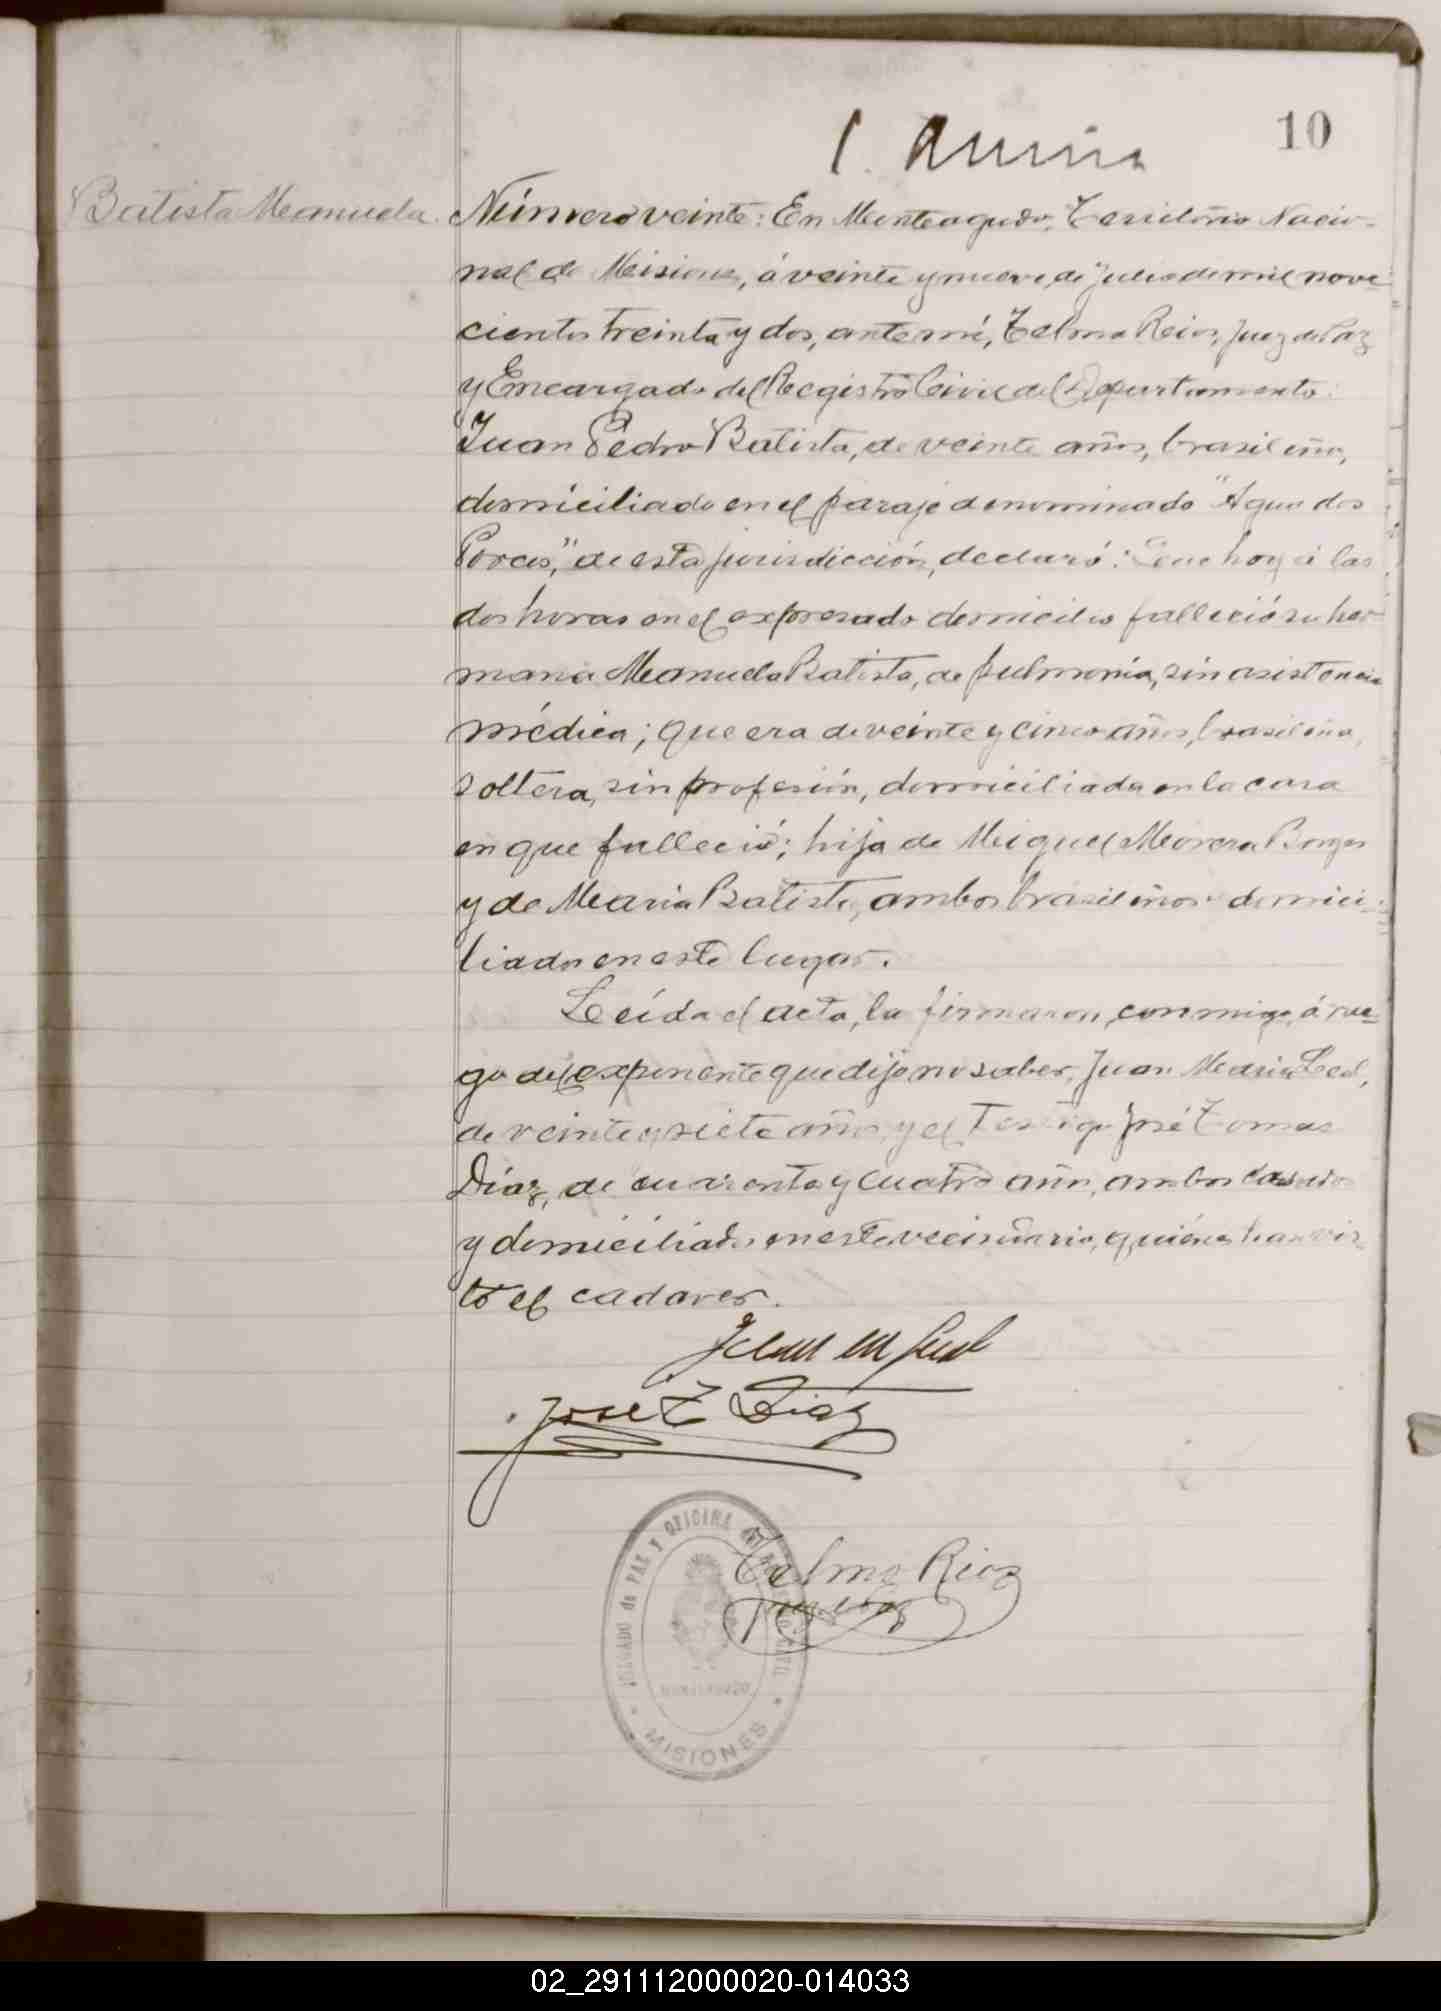 10
Batista Manuela.
Número veinte: En Monteagudo, Territorio Nacio-
nal de Misiones, á veinte y nueve de julio de mil nove-
cientos treinta y dos, ante mí, Telmo Rios, Juez de Paz
y Encargado del Registro Civil del Departamento:
Juan Pedro Batista, de veinte años, brasileño,
domiciliado en el paraje denominado "Agua dos
Porcos", de esta jurisdicción, declaró: Que hoy á las
dos horas en el expresado domicilio falleció su her-
mana Manuela Batista, de pulmonía, sin asistencia
médica; que era de veinte y cinco años, brasileña,
soltera, sin profesión, domiciliada en la casa
en que falleció; hija de Miguel Morera Borges
y de Maria Batista, ambos brasileños domici-
liados en este lugar.
Leída el acta, la firmaron, conmigo, á rue-
go del exponente que dijo no saber, Juan Maria Leal,
de veinte y siete años y el testigo José Tomas
Díaz, de cuarenta y cuatro años, ambos casados
y domiciliados en este vecindario, quiénes han vis-
to el cadaver.
Jose T Diaz
Telmo Rios
JUZGADO de PAZ y OFICINA del REGISTRO CIVIL
MONTEAGUDO
MISIONES
02_291112000020-014033